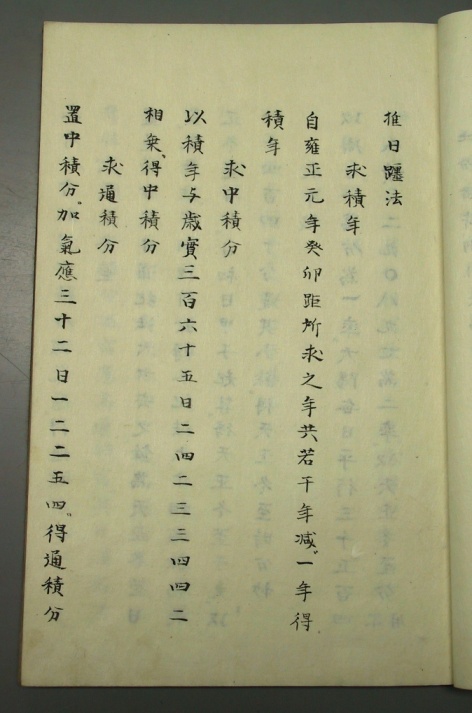 推日躔法
求積年
自雍正元年癸卯距所求之年共若干年減一年得
積年
求中積分
以積年与歳實三百六十五日二四二三三四四二
相乗、得中積分
求通積分
置中積分。加氣應三十二日一二二五四。得通積分